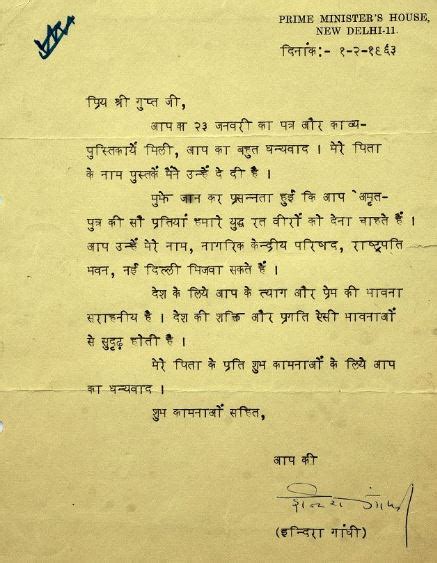 PRIME MINISTER'S HOUSE,
NEW DELHI-11.
दिनांक:- १-२-१९६३
प्रिय श्री गुप्त जी,
आपका २३ जनवरी का पत्र और काव्य-
पुस्तिकायें मिली, आप का बहुत धन्यवाद । मेरे पिता
के नाम पुस्तकें मैंने उन्हें दे दी है ।
मुझे जान कर प्रसन्नता हुई कि आप `अमृत-
पुत्र की सौ प्रतियां हमारे युद्ध रत वीरों को देना चाहते हैं ।
आप उन्हें मेरे नाम, नागरिक केन्द्रीय परिषद, राष्ट्रपति
भवन, नई दिल्ली भिजवा सकते हैं ।
देश के लिये आप के त्याग और प्रेम की भावना
सराहनीय है । देश की शक्ति और प्रगति ऐसी भावनाओं
से सुदृढ़ होती है ।
मेरे पिता के प्रति शुभ कामनाओं के लिये आप
का धन्यवाद ।
शुभ कामनाओं सहित,
आप की
इन्दिरा गांधी
(इन्दिरा गांधी)